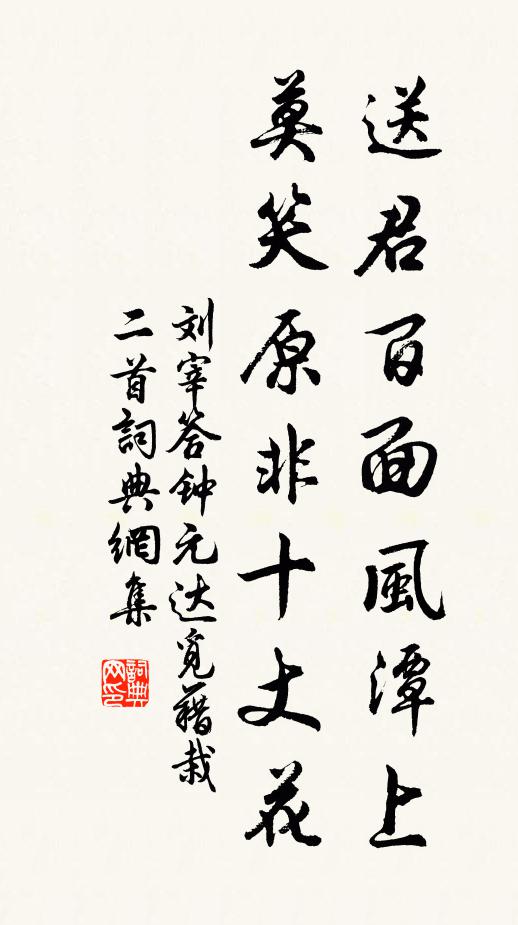 送君百面風潭上
莫笑原非十丈花
刘宰答钟元达觅藕栽
二首詞典網集
詞典网印